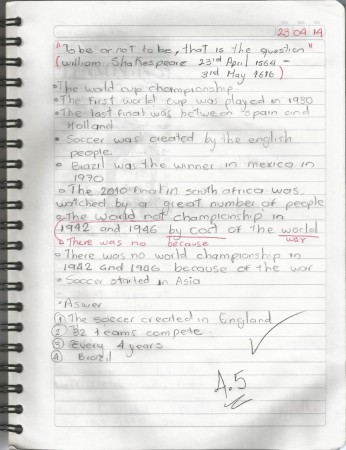 23 04 14
"To be or not to be, that is the question"
(William Shakespeare 23rd April 1564 -
3rd May 1616)
• The world cup championship
• The first world cup was played in 1930
• The last final was between Spain and
Holland
• Soccer was created by the english
people
• Brazil was the winner in mexico in
1970
• The 2010 final in south africa was
watched by a great number of people
• The world not championship in
1942 and 1946 by cost of the world
war
• There was no because
• There was no world championship in
1942 and 1946 because of the war
• Soccer started in Asia
• Aswer
① The soccer created in England
② 32 teams compete
③ Every 4 years
④ Brazil
A.5